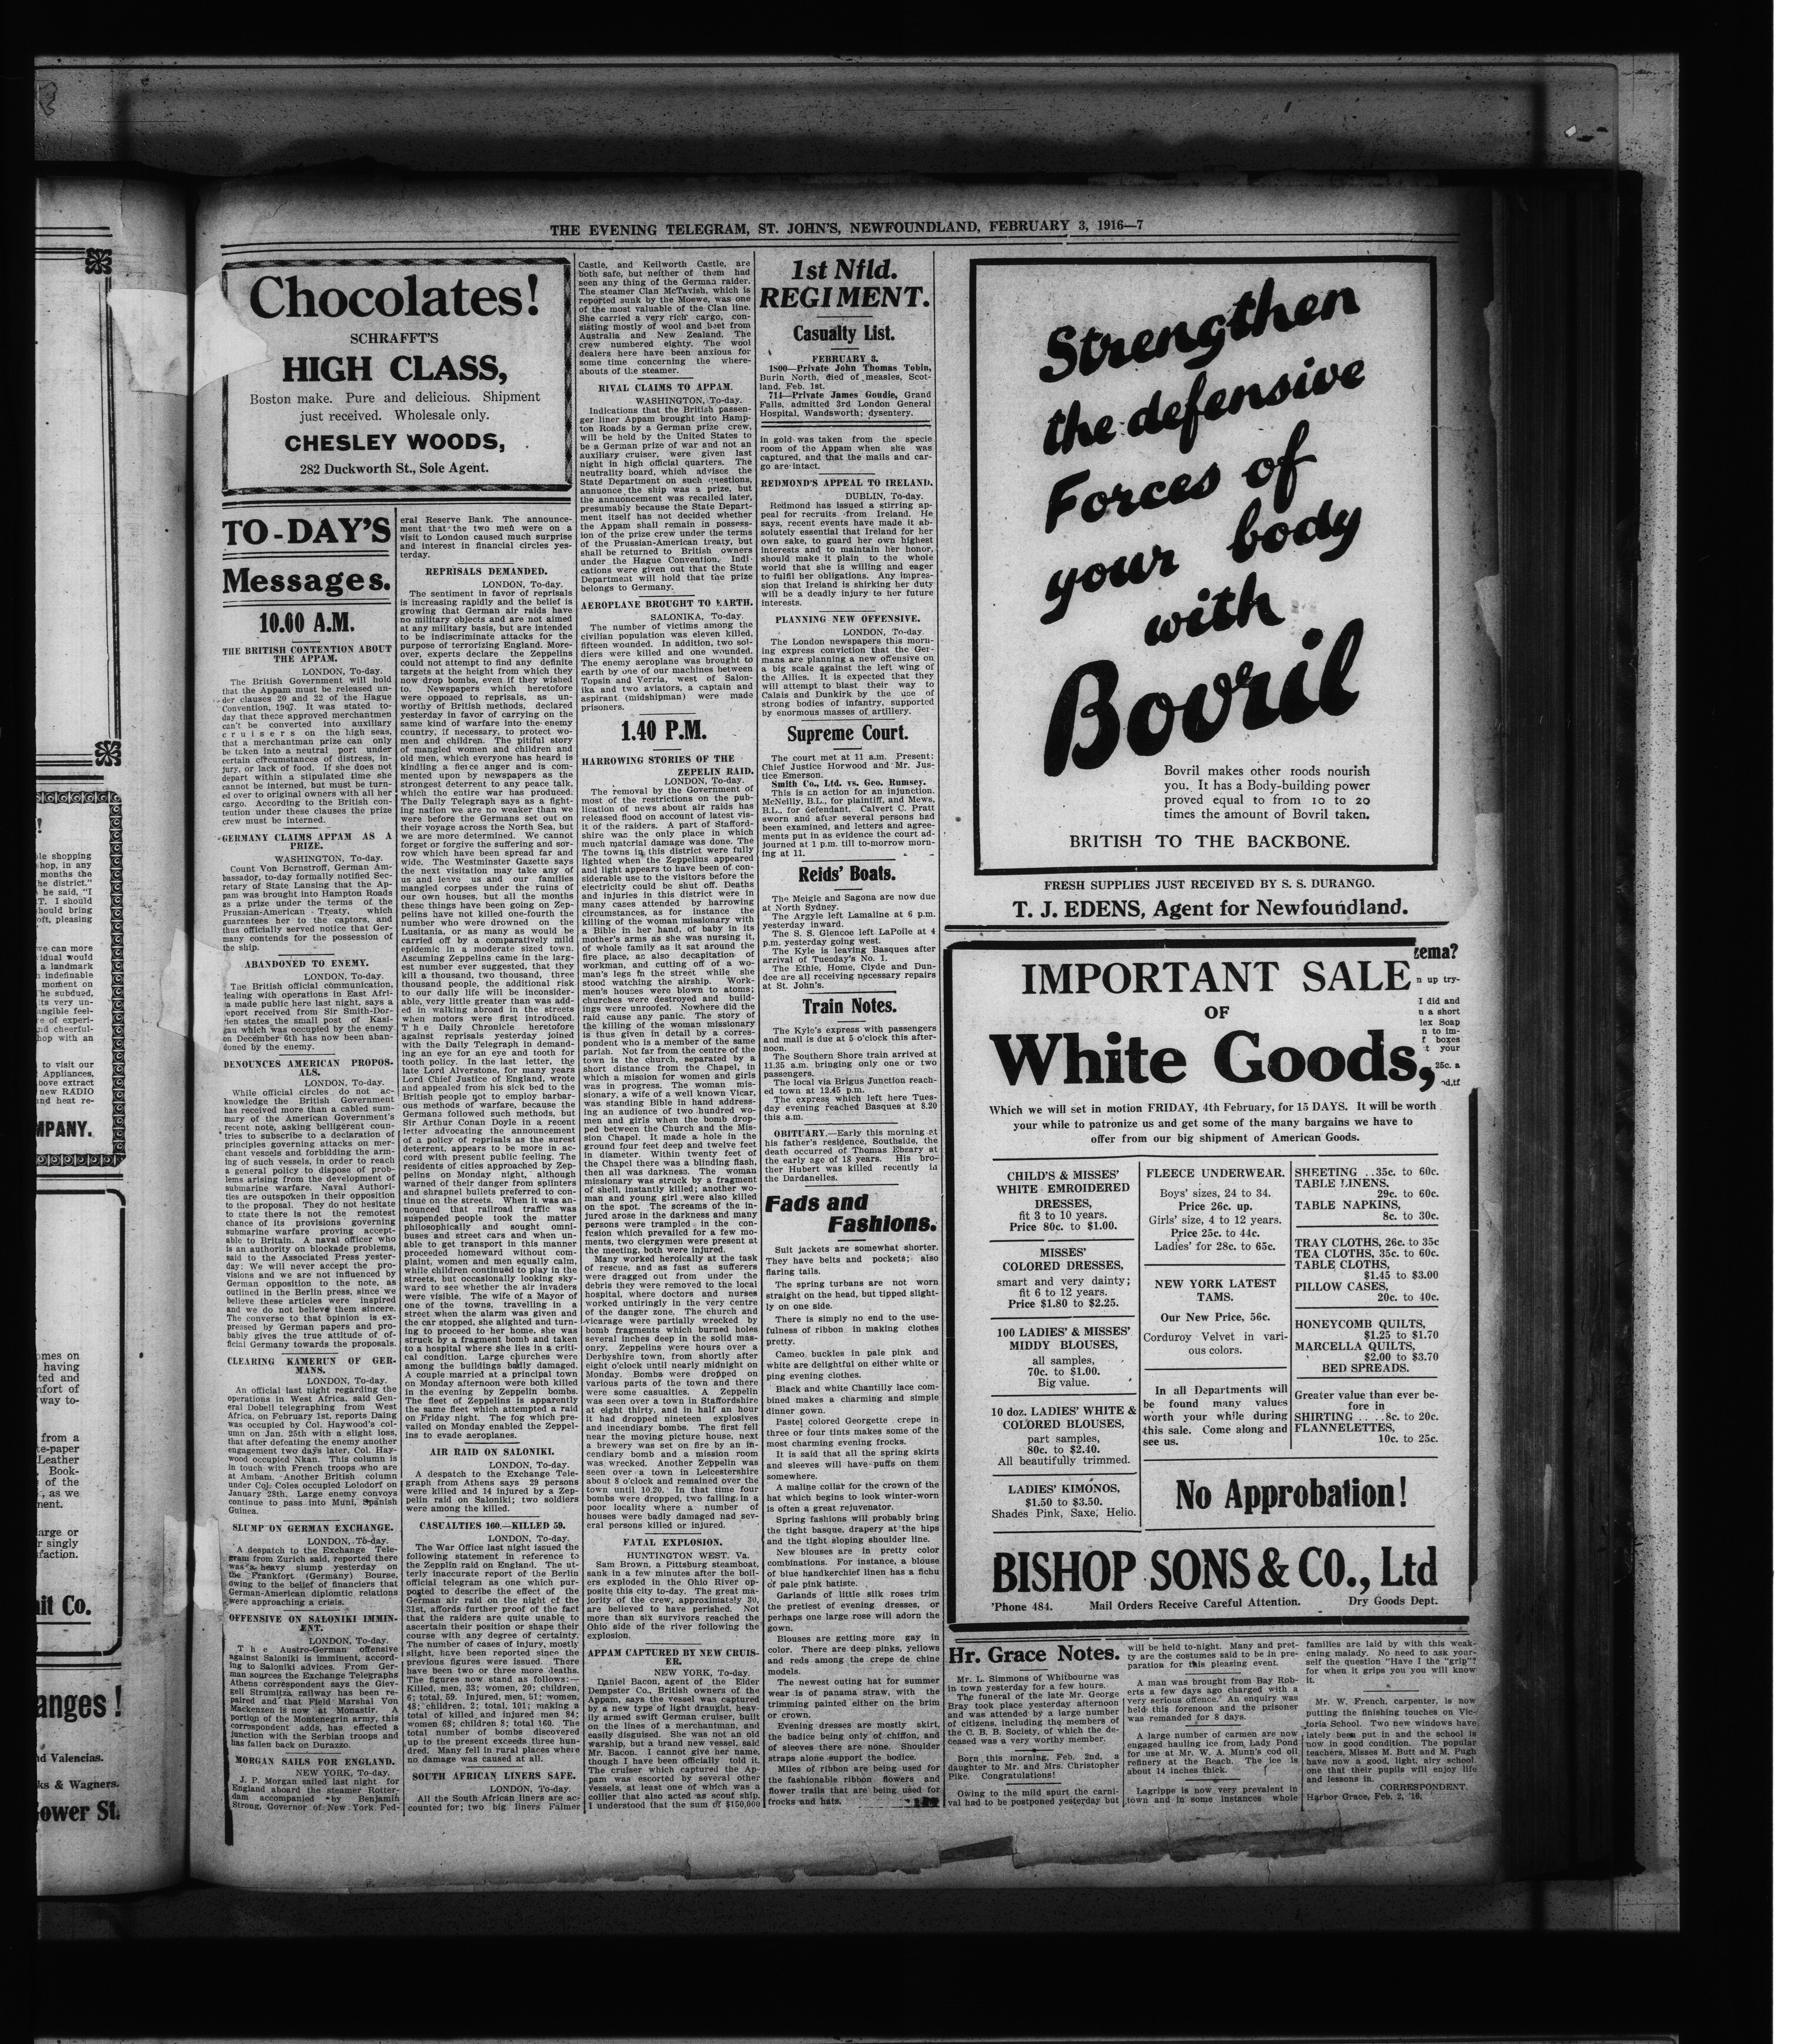 THE EVENING TELEGRAM, ST. JOHN'S, NEWFOUNDLAND, FEBRUARY 3, 1916—7
Chocolates!
SCHRAFFT'S
HIGH CLASS,
Boston make. Pure and delicious. Shipment
just received. Wholesale only.
CHESLEY WOODS,
282 Duckworth St., Sole Agent.
TO-DAY'S
Messages.
10.00 A.M.
THE BRITISH CONTENTION ABOUT
THE APPAM.
LONDON, To-day.
The British Government will hold
that the Appam must be released un-
der clauses 20 and 22 of the Hague
Convention, 1907. It was stated to-
day that these approved merchantmen
can't be converted into auxiliary
cruisers on the high seas,
that a merchantman prize can only
be taken into a neutral port under
certain circumstances of distress, in-
jury, or lack of food. If she does not
depart within a stipulated time she
cannot be interned, but must be turn-
ed over to original owners with all her
cargo. According to the British con-
tention under these clauses the prize
crew must be interned.
GERMANY CLAIMS APPAM AS A
PRIZE.
WASHINGTON, To-day.
Count Von Bernstroff, German Am-
bassador, to-day formally notified Sec-
retary of State Lansing that the Ap-
pam was brought into Hampton Roads
as a prize under the terms of the
Prussian-American Treaty, which
guarentees her to the captors, and
thus officially served notice that Ger-
many contends for the possession of
the ship.
ABANDONED TO ENEMY.
LONDON, To-day.
The British official communication,
dealing with operations in East Afri-
a made public here last night, says a
eport received from Sir Smith-Dor-
ien states the small post of Kasi-
gau which was occupied by the enemy
on December 6th has now been aban-
doned by the enemy.
DENOUNCES AMERICAN PROPOS-
ALS.
LONDON, To-day.
While official circles do not ac-
knowledge the British Government
has received more than a cabled sum-
mary of the American Government's
recent note, asking belligerent coun-
tries to subscribe to a declaration of
principles governing attacks on mer-
chant vessels and forbidding the arm-
ing of such vessels, in order to reach
a general policy to dispose of prob-
lems arising from the development of
submarine warfare. Naval Authori-
ties are outspoken in their opposition
to the proposal. They do not hesitate
to state there is not the remotest
chance of its provisions governing
submarine warfare proving accept-
able to Britain. A naval officer who
is an authority on blockade problems,
said to the Associated Press yester-
day: We will never accept the pro-
visions and we are not influenced by
German opposition to the note, as
outlined in the Berlin press, since we
believe these articles were inspired
and we do not believe them sincere.
The converse to that opinion is ex-
pressed by German papers and pro-
bably gives the true attitude of of-
ficial Germany towards the proposals.
CLEARING KAMERUN OF GER-
MANS.
LONDON, To-day.
An official last night regarding the
operations in West Africa, said Gen-
eral Dobell telegraphing from West
Africa, on February 1st, reports Daing
was occupied by Col. Haywood's col-
umn on Jan. 25th with a slight loss,
that after defeating the enemy another
engagement two days later, Col. Hay-
wood occupied Nkan. This column is
in touch with French troops who are
at Ambam. Another British column
under Col. Coles occupied Lolodorf on
January 28th. Large enemy convoys
continue to pass into Muni, Spanish
Guinea.
SLUMP ON GERMAN EXCHANGE.
LONDON, To-day.
A despatch to the Exchange Tele-
gram from Zurich said, reported there
was a heavy slump yesterday on
the Frankfort (Germany) Bourse,
owing to the belief of financiers that
German-American diplomtic relations
were approaching a crisis.
OFFENSIVE ON SALONIKI IMMIN-
ENT.
LONDON, To-day.
The Austro-German offensive
against Saloniki is imminent, accord-
ing to Saloniki advices. From Ger-
man sources the Exchange Telegraphs
Athens correspondent says the Giev-
geli Strumitza railway has been re-
paired and that Field Marshal Von
Mackenzen is now at Monastir. A
portion of the Montenegrin army, this
correspondent adds, has effected a
junction with the Serbian troops and
has fallen back on Durazzo.
MORGAN SAILS FOR ENGLAND.
NEW YORK, To-day.
J. P. Morgan sailed last night for
England aboard the steamer Rotter-
dam accompanied by Benjamin
Strong, Governor of New York Fed-
eral Reserve Bank. The announce-
ment that the two men were on a
visit to London caused much surprise
and interest in financial circles yes-
terday.
REPRISALS DEMANDED.
LONDON, To-day.
The sentiment in favor of reprisals
is increasing rapidly and the belief is
growing that German air raids have
no military objects and are not aimed
at any military basis, but are intended
to be indiscriminate attacks for the
purpose of terrorizing England. More-
over, experts declare the Zeppelins
could not attempt to find any definite
targets at the height from which they
now drop bombs, even if they wished
to. Newspapers which heretofore
were opposed to reprisals, as un-
worthy of British methods, declared
yesterday in favor of carrying on the
same kind of warfare into the enemy
country, if necessary, to protect wo-
men and children. The pitiful story
of mangled women and children and
old men, which everyone has heard is
kindling a fierce anger and is com-
mented upon by newspapers as the
strongest deterrent to any peace talk,
which the entire war has produced.
The Daily Telegraph says as a fight-
ing nation we are no weaker than we
were before the Germans set out on
their voyage across the North Sea, but
we are more determined. We cannot
forget or forgive the suffering and sor-
row which have been spread far and
wide. The Westminster Gazette says
the next visitation may take any of
us and leave us and our families
mangled corpses under the ruins of
our own houses, but all the months
these things have been going on Zep-
pelins have not killed one-fourth the
number who were drowned on the
Lusitania, or as many as would be
carried off by a comparatively mild
epidemic in a moderate sized town.
Ascuming Zeppelins came in the larg-
est number ever suggested, that they
kill a thousand, two thousand, three
thousand people, the additional risk
to our daily life will be inconsider-
able, very little greater than was add-
ed in walking abroad in the streets
when motors were first introduced.
The Daily Chronicle heretofore
against reprisals yesterday joined
with the Daily Telegraph in demand-
ing an eye for an eye and tooth for
tooth policy. In the last letter, the
late Lord Alverstone, for many years
Lord Chief Justice of England, wrote
and appealed from his sick bed to the
British people not to employ barbar-
ous methods of warfare, because the
Germans followed such methods, but
Sir Arthur Conan Doyle in a recent
letter advocating the announcement
of a policy of reprisals as the surest
deterrent, appears to be more in ac-
cord with present public feeling. The
residents of cities approached by Zep-
pelins on Monday night, although
warned of their danger from splinters
and shrapnel bullets preferred to con-
tinue on the streets. When it was an-
nounced that railroad traffic was
suspended people took the matter
philosophically and sought omni-
buses and street cars and when un-
able to get transport in this manner
proceeded homeward without com-
plaint, women and men equally calm,
while children continued to play in the
streets, but occasionally looking sky-
ward to see whether the air invaders
were visible. The wife of a Mayor of
one of the towns, travelling in a
street when the alarm was given and
the car stopped, she alighted and turn-
ing to proceed to her home, she was
struck by a fragment bomb and taken
to a hospital where she lies in a criti-
cal condition. Large churches were
among the buildings badly damaged.
A couple married at a principal town
on Monday afternoon were both killed
in the evening by Zeppelin bombs.
The fleet of Zeppelins is apparently
the same fleet which attempted a raid
on Friday night. The fog which pre-
vailed on Monday enabled the Zeppel-
ins to evade aeroplanes.
AIR RAID ON SALONIKI.
LONDON, To-day.
A despatch to the Exchange Tele-
graph from Athens says 29 persons
were killed and 14 injured by a Zep-
pelin raid on Saloniki; two soldiers
were among the killed.
CASUALTIES 160.—KILLED 59.
LONDON, To-day.
The War Office last night issued the
following statement in reference to
the Zepplin raid on England. The ut-
terly inaccurate report of the Berlin
official telegram as one which pur-
ported to describe the effect of the
German air raid on the night of the
31st, affords further proof of the fact
that the raiders are quite unable to
ascertain their position or shape their
course with any degree of certainty.
The number of cases of injury, mostly
slight, have been reported since the
previous figures were issued. There
have been two or three more deaths.
The figures now stand as follows:—
Killed, men, 33; women, 20; children,
6; total, 59. Injured, men, 51; women,
48; children, 2; total, 101; making a
total of killed and injured men 84;
women 68; children 8; total 160. The
total number of bombs discovered
up to the present exceeds three hun-
dred. Many fell in rural places where
no damage was caused at all.
SOUTH AFRICAN LINERS SAFE.
LONDON, To-day.
All the South African liners are ac-
counted for; two big liners Falmer
Castle, and Keilworth Castle, are
both safe, but neither of them had
seen any thing of the German raider.
The steamer Clan McTavish, which is
reported sunk by the Moewe, was one
of the most valuable of the Clan line.
She carried a very rich cargo, con-
sisting mostly of wool and beet from
Australia and New Zealand. The
crew numbered eighty. The wool
dealers here have been anxious for
some time concerning the where-
abouts of the steamer.
RIVAL CLAIMS TO APPAM.
WASHINGTON, To-day.
Indications that the British passen-
ger liner Appam brought into Hamp-
ton Roads by a German prize crew,
will be held by the United States to
be a German prize of war and not an
auxiliary cruiser, were given last
night in high official quarters. The
neutrality board, which advises the
State Department on such questions,
annuonce the ship was a prize, but
the announcement was recalled later,
presumably because the State Depart-
ment itself has not decided whether
the Appam shall remain in possess-
ion of the prize crew under the terms
of the Prussian-American treaty, but
shall be returned to British owners
under the Hague Convention. Indi-
cations were given out that the State
Department will hold that the prize
belongs to Germany.
AEROPLANE BROUGHT TO EARTH.
SALONIKA, To-day.
The number of victims among the
civilian population was eleven killed,
fifteen wounded. In addition, two sol-
diers were killed and one wounded.
The enemy aeroplane was brought to
earth by one of our machines between
Topsin and Verria, west of Salon-
ika and two aviators, a captain and
aspirant (midshipman) were made
prisoners.
1.40 P.M.
HARROWING STORIES OF THE
ZEPELIN RAID.
LONDON, To-day.
The removal by the Government of
most of the restrictions on the pub-
lication of news about air raids has
released flood on account of latest vis-
it of the raiders. A part of Stafford-
shire was the only place in which
much material damage was done. The
The towns in this district were fully
lighted when the Zeppelins appeared
and light appears to have been of con-
siderable use to the visitors before the
electricity could be shut off. Deaths
and injuries in this district were in
many cases attended by harrowing
circumstances, as for instance the
killing of the woman missionary with
a Bible in her hand, of baby in its
mother's arms as she was nursing it,
of whole family as it sat around the
fire place, as also decapitation of
workman, and cutting off of a wo-
man's legs in the street while she
stood watching the airship. Work-
men's houses were blown to atoms;
churches were destroyed and build-
ings were unroofed. Nowhere did the
raid cause any panic. The story of
the killing of the woman missionary
is thus given in detail by a corres-
pondent who is a member of the same
parish. Not far from the centre of the
town is the church, separated by a
short distance from the Chapel, in
which a mission for women and girls
was in progress. The woman mis-
sionary, a wife of a well known Vicar,
was standing Bible in hand address-
ing an audience of two hundred wo-
men and girls when the bomb drop-
ped between the Church and the Mis-
sion Chapel. It made a hole in the
ground four feet deep and twelve feet
in diameter. Within twenty feet of
the Chapel there was a blinding flash,
then all was darkness. The woman
missionary was struck by a fragment
of shell, instantly killed; another wo-
man and young girl were also killed
on the spot. The screams of the in-
jured arose in the darkness and many
persons were trampled in the con-
fusion which prevailed for a few mo-
ments, two clergymen were present at
the meeting, both were injured.
Many worked heroically at the task
of rescue, and as fast as sufferers
were dragged out from under the
debris they were removed to the local
hospital, where doctors and nurses
worked untiringly in the very centre
of the danger zone. The church and
vicarage were partially wrecked by
bomb fragments which burned holes
several inches deep in the solid mas-
onry. Zeppelins were hours over a
Derbyshire town, from shortly after
eight o'clock until nearly midnight on
Monday. Bombs were dropped on
various parts of the town and there
were some casualties. A Zeppelin
was seen over a town in Staffordshire
at eight thirty, and in half an hour
it had dropped nineteen explosives
and incendiary bombs. The first fell
near the moving picture house, next
a brewery was set on fire by an in-
cendiary bomb and a mission room
was wrecked. Another Zeppelin was
seen over a town in Leicestershire
about 8 o'clock and remained over the
town until 10.20. In that time four
bombs were dropped, two falling in a
poor locality where a number of
houses were badly damaged nad sev-
eral persons killed or injured.
FATAL EXPLOSION.
HUNTINGTON WEST. Va.
Sam Brown, a Pittsburg steamboat,
sank in a few minutes after the boil-
ers exploded in the Ohio River op-
posite this city to-day. The great ma-
jority of the crew, approximately 30,
are believed to have perished. Not
more than six survivors reached the
Ohio side of the river following the
explosion.
APPAM CAPTURED BY NEW CRUIS-
ER.
NEW YORK, To-day.
Daniel Bacon, agent of the Elder
Dempster Co., British owners of the
Appam, says the vessel was captured
by a new type of light draught, heav-
ily armed swift German cruiser, built
on the lines of a merchantman, and
easily disguised. She was not an old
warship, but a brand new vessel, said
Mr. Bacon. I cannot give her name,
though I have been officially told it.
The cruiser which captured the Ap-
pam was escorted by several other
vessels, at least one of which was a
collier that also acted as scout ship.
I understood that the sum of $150,000
1st Nfld.
REGIMENT.
Casualty List.
FEBRUARY 3.
1800—Private John Thomas Tobin,
Burin North, died of measles, Scot-
land, Feb. 1st.
714—Private James Goudie, Grand
Falls, admitted 3rd London General
Hospital, Wandsworth; dysentery.
in gold was taken from the specie
room of the Appam when she was
captured, and that the mails and car-
go are intact.
REDMOND'S APPEAL TO IRELAND.
DUBLIN, To-day.
Redmond has issued a stirring ap-
peal for recruits from Ireland. He
says, recent events have made it ab-
solutely essential that Ireland for her
own sake, to guard her own highest
interests and to maintain her honor,
should make it plain to the whole
world that she is willing and eager
to fulfil her obligations. Any impres-
sion that Ireland is shirking her duty
will be a deadly injury to her future
interests.
PLANNING NEW OFFENSIVE.
LONDON, To-day.
The London newspapers this morn-
ing express conviction that the Ger-
mans are planning a new offensive on
a big scale against the left wing of
the Allies. It is expected that they
will attempt to blast their way to
Calais and Dunkirk by the use of
strong bodies of infantry, supported
by enormous masses of artillery.
Supreme Court.
The court met at 11 a.m. Present:
Chief Justice Horwood and Mr. Jus-
tice Emerson.
Smith Co., Ltd. vs. Geo. Rumsey.
This is an action for an injunction.
McNeilly, B.L., for plaintiff, and Mews,
B.L., for defendant. Calvert C. Pratt
sworn and after several persons had
been examined, and letters and agree-
ments put in as evidence the court ad-
journed at 1 p.m. till to-morrow morn-
ing at 11.
Reids' Boats.
The Meigle and Sagona are now due
at North Sydney.
The Argyle left Lamaline at 6 p.m.
yesterday inward.
The S. S. Glencoe left LaPoile at 4
p.m. yesterday going west.
The Kyle is leaving Basques after
arrival of Tuesday's No. 1.
The Ethie, Home, Clyde and Dun-
dee are all receiving necessary repairs
at St. John's.
Train Notes.
The Kyle's express with passengers
and mail is due at 5 o'clock this after-
noon.
The Southern Shore train arrived at
11.35 a.m. bringing only one or two
passengers.
The local via Brigus Junction reach-
ed town at 12.45 p.m.
The express which left here Tues-
day evening reached Basques at 8.20
this a.m.
OBITUARY.—Early this morning at
his father's residence, Southside, the
death occurred of Thomas Ebeary at
the early age of 18 years. His bro-
ther Hubert was killed recently in
the Dardanelles.
Fads and
Fashions.
Suit jackets are somewhat shorter.
They have belts and pockets; also
flaring tails.
The spring turbans are not worn
straight on the head, but tipped slight-
ly on one side.
There is simply no end to the use-
fulness of ribbon in making clothes
pretty.
Cameo buckles in pale pink and
white are delightful on either white or
ping evening clothes.
Black and white Chantilly lace com-
bined makes a charming and simple
dinner gown.
Pastel colored Georgette crepe in
three or four tints makes some of the
most charming evening frocks.
It is said that all the spring skirts
and sleeves will have puffs on them
somewhere.
A maline collar for the crown of the
hat which begins to look winter-worn
is often a great rejuvenator.
Spring fashions will probably bring
the tight basque, drapery at the hips
and the tight sloping shoulder line.
New blouses are in pretty color
combinations. For instance, a blouse
of blue handkerchief linen has a fichu
of pale pink batiste.
Garlands of little silk roses trim
the pretiest of evening dresses, or
perhaps one large rose will adorn the
gown.
Blouses are getting more gay in
color. There are deep pinks, yellows
and reds among the crepe de chine
models.
The newest outing hat for summer
wear is of panama straw, with the
trimming painted either on the brim
or crown.
Evening dresses are mostly skirt,
the badice being only of chiffon, and
of sleeves there are none. Shoulder
straps alone support the bodice.
Miles of ribbon are being used for
the fashionable ribbon flowers and
flower trails that are being used for
frocks and hats.
Strengthen
the defensive
Forces of
your body
with
Bovril
Bovril makes other foods nourish
you. It has a Body-building power
proved equal to from 10 to 20
times the amount of Bovril taken.
BRITISH TO THE BACKBONE.
FRESH SUPPLIES JUST RECEIVED BY S. S. DURANGO.
T. J. EDENS, Agent for Newfoundland.
IMPORTANT SALE
OF
White Goods,
Which we will set in motion FRIDAY, 4th February, for 15 DAYS. It will be worth
your while to patronize us and get some of the many bargains we have to
offer from our big shipment of American Goods.
CHILD'S & MISSES'
WHITE EMROIDERED
DRESSES,
fit 3 to 10 years.
Price 80c. to $1.00.
MISSES'
COLORED DRESSES,
smart and very dainty;
fit 6 to 12 years.
Price $1.80 to $2.25.
100 LADIES' & MISSES'
MIDDY BLOUSES,
all samples,
70c. to $1.00.
Big value.
10 doz. LADIES' WHITE &
COLORED BLOUSES,
part samples,
80c. to $2.40.
All beautifully trimmed.
LADIES' KIMONOS,
$1.50 to $3.50.
Shades Pink, Saxe, Helio.
FLEECE UNDERWEAR.
Boys' sizes, 24 to 34.
Price 26c. up.
Girls' size, 4 to 12 years.
Price 25c. to 44c.
Ladies' for 28c. to 65c.
NEW YORK LATEST
TAMS.
Our New Price, 56c.
Corduroy Velvet in vari-
ous colors.
In all Departments will
be found many values
worth your while during
this sale. Come along and
see us.
SHEETING ..35c. to 60c.
TABLE LINENS,
29c. to 60c.
TABLE NAPKINS,
8c. to 30c.
TRAY CLOTHS, 26c. to 35c
TEA CLOTHS, 35c. to 60c.
TABLE CLOTHS,
$1.45 to $3.00
PILLOW CASES,
20c. to 40c.
HONEYCOMB QUILTS,
$1.25 to $1.70
MARCELLA QUILTS,
$2.00 to $3.70
BED SPREADS.
Greater value than ever be-
fore in
SHIRTING ....8c. to 20c.
FLANNELETTES,
10c. to 25c.
No Approbation!
BISHOP SONS & CO., Ltd
'Phone 484. Mail Orders Receive Careful Attention. Dry Goods Dept.
Hr. Grace Notes.
Mr. L. Simmons of Whitbourne was
in town yesterday for a few hours.
The funeral of the late Mr. George
Bray took place yesterday afternoon
and was attended by a large number
of citizens, including the members of
the C. B. B. Society, of which the de-
ceased was a very worthy member.
Born this morning, Feb. 2nd, a
daughter to Mr. and Mrs. Christopher
Pike. Congratulations!
Owing to the mild spurt the carni-
val had to be postponed yesterday but
will be held to-night. Many and pret-
ty are the costumes said to be in pre-
paration for this pleasing event.
A man was brought from Bay Rob-
erts a few days ago charged with a
very serious offence. An enquiry was
held this forenoon and the prisoner
was remanded for 8 days.
A large number of carmen are now
engaged hauling ice from Lady Pond
for use at Mr. W. A. Munn's cod oil
refinery at the Beach. The ice is
about 14 inches thick.
Lagrippe is now very prevalent in
town and in some instances whole
families are laid by with this weak-
ening malady. No need to ask your-
self the question "Have I the "grip"?
for when it grips you you will know
it.
Mr. W. French, carpenter, is now
putting the finishing touches on Vic-
toria School. Two new windows have
lately been put in and the school is
now in good condition. The popular
teachers, Misses M. Butt and M. Pugh
have now a good, light, airy school,
one that their pupils will enjoy life
and lessons in.
CORRESPONDENT.
Harbor Grace, Feb. 2, '16.